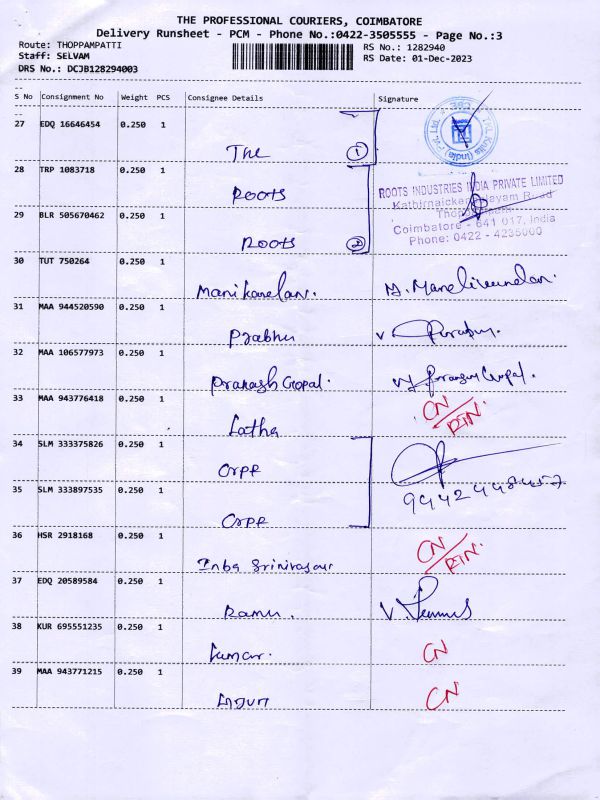 THE PROFESSIONAL COURIERS, COIMBATORE
Delivery Runsheet - PCM - Phone No.:0422-3505555 - Page No.:3
Route: THOPPAMPATTI RS No.: 1282940
Staff: SELVAM RS Date: 01-Dec-2023
DRS No.: DCJB128294003
S No Consignment No Weight PCS Consignee Details Signature
27 EDQ 16646454 0.250 1
The 1
28 TRP 1083718 0.250 1
Roots
ROOTS INDUSTRIES INDIA PRIVATE LIMITED
Kathirnaickenpalayam Road
29 BLR 505670462 0.250 1
Coimbatore - 641 017, India
Roots 2 Phone: 0422 - 4235000
30 TUT 750264 0.250 1
Manikandan.
31 MAA 944520590 0.250 1
Prabhu
32 MAA 106577973 0.250 1
Prakash Gopal.
33 MAA 943776418 0.250 1 CN/RTN.
Latha
34 SLM 333375826 0.250 1
35 SLM 333897535 0.250 1
36 HSR 2918168 0.250 1 CN/RTN.
Inba Srinivasan
37 EDQ 20589584 0.250 1
Ramu.
38 KUR 695551235 0.250 1 CN
Kumar.
39 MAA 943771215 0.250 1 CN
Arjun